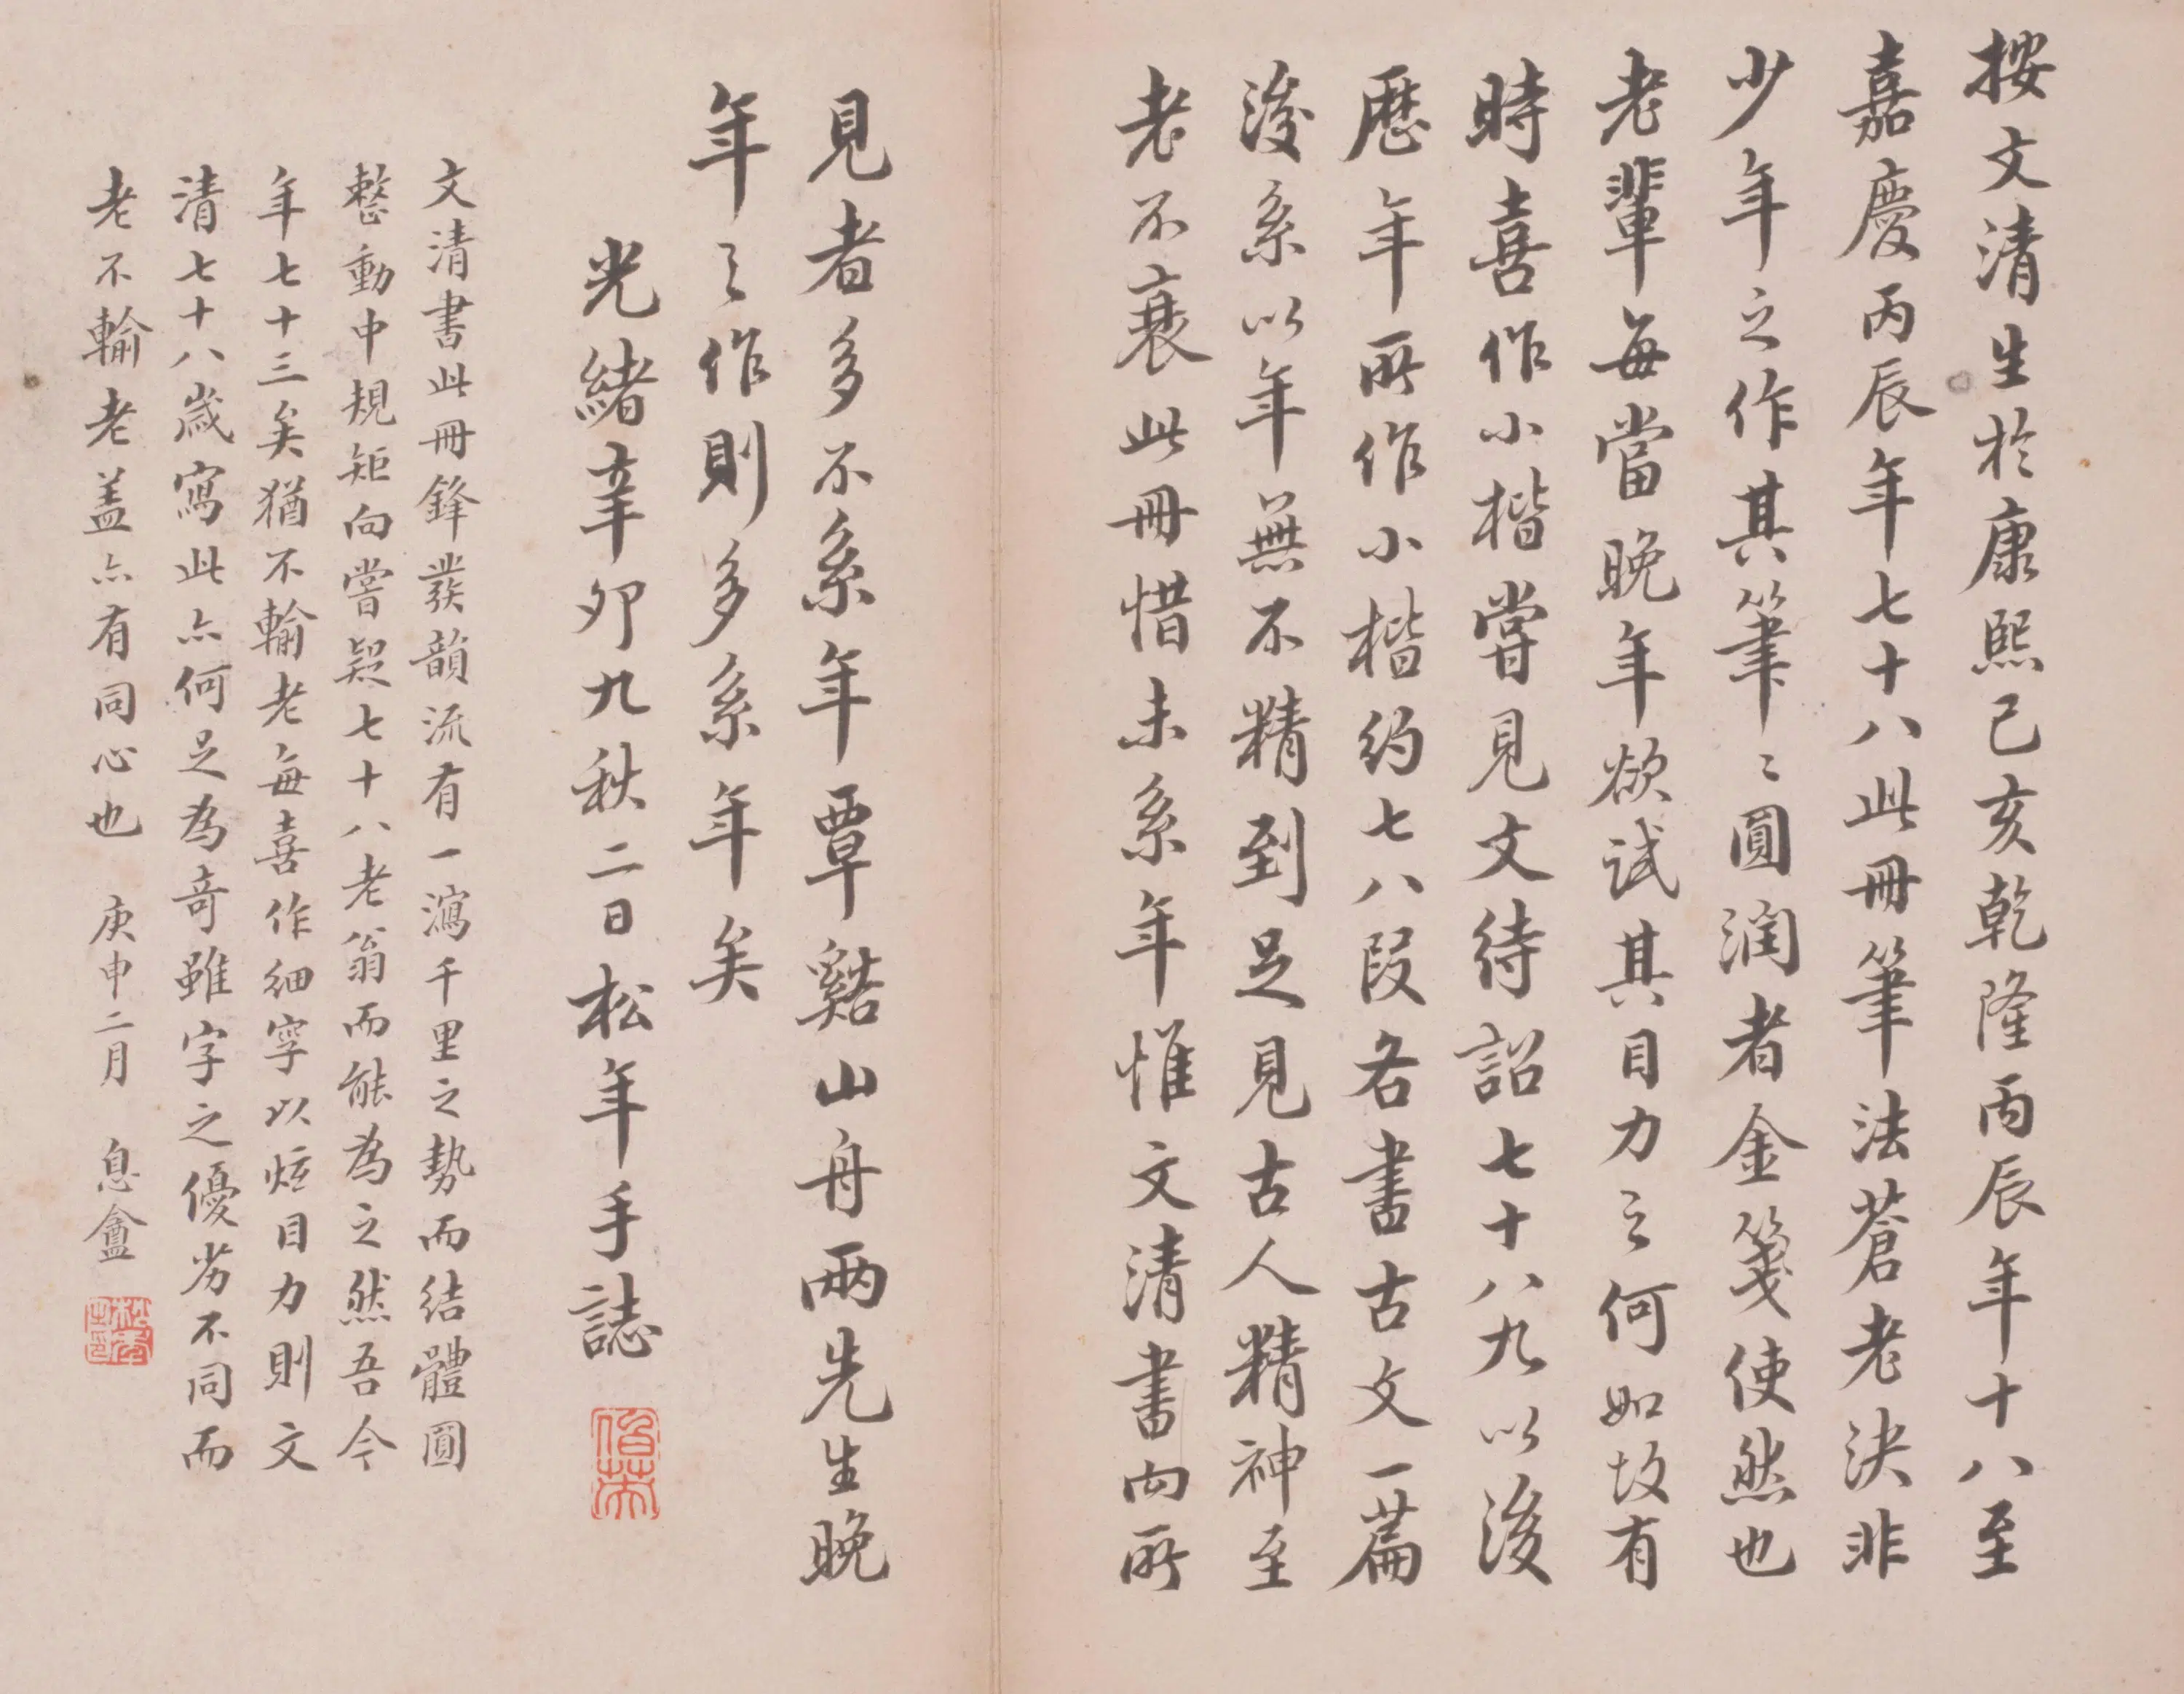 按文清生於康熙己亥乾隆丙辰年十八至
嘉慶丙辰年七十八此冊筆法蒼老決非
少年之作其筆〻圓潤者金箋使然也
老輩每當晚年欲試其目力之何如故有
時喜作小楷嘗見文待詔七十八九以後
歷年所作小楷約七八段各書古文一篇
後系以年無不精到足見古人精神至
老不衰此冊惜未系年惟文清書向所
見者多不系年覃谿山舟兩先生晚
年之作則多系年矣
光緒辛卯九秋二日松年手誌
文清書此冊鋒發韻流有一瀉千里之勢而結體圓
整動中規矩向嘗疑七十八老翁而能為之然吾今
年七十三矣猶不輸老每喜作細字以炫目力則文
清七十八歲寫此亦何足為奇雖字之優劣不同而
老不輸老蓋亦有同心也 庚申二月 息盦